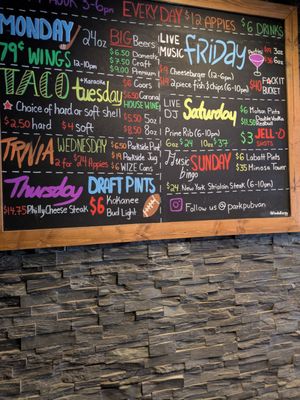 HOUR 3-6pm
EVERYDAY $12 APPIES $6 DRINKS
MONDAY
79¢ WINGS 12-10pm
24oz BIG Beers
$6.50 Domestic
$7.50 Craft
$9.00 Premium
TACO tuesday
Karaoke
Coors
$6.50 Corona
HOUSE WINE
$5.50 5oz
$8.50 8oz
Choice of hard or soft shell
$2.50 hard $4 soft
TRIVIA WEDNESDAY
2 for $24 Appies
$6.50 Parkside Pint
$19 Parkside Jug
$6 WIZE Cans
Thursday
$14.75 Philly Cheese Steak
DRAFT PINTS
$6 Kokanee
Bud Light
LIVE MUSIC
FRIDAY
Cheeseburger (12-6pm)
2 piece fish & chips (6-10pm)
$40
PACK IT
BUCKET
LIVE
DJ
Saturday
Prime Rib (6-10pm)
6oz $24 10oz $37
$6 Malibu Pints
Double Vodka
Redbull
$3 JELL-O
SHOTS
Music
bingo
SUNDAY
$6 Labatt Pints
$35 Mimosa Tower
$24 New York Striploin Steak (6-10pm)
Follow us @parkpubvan